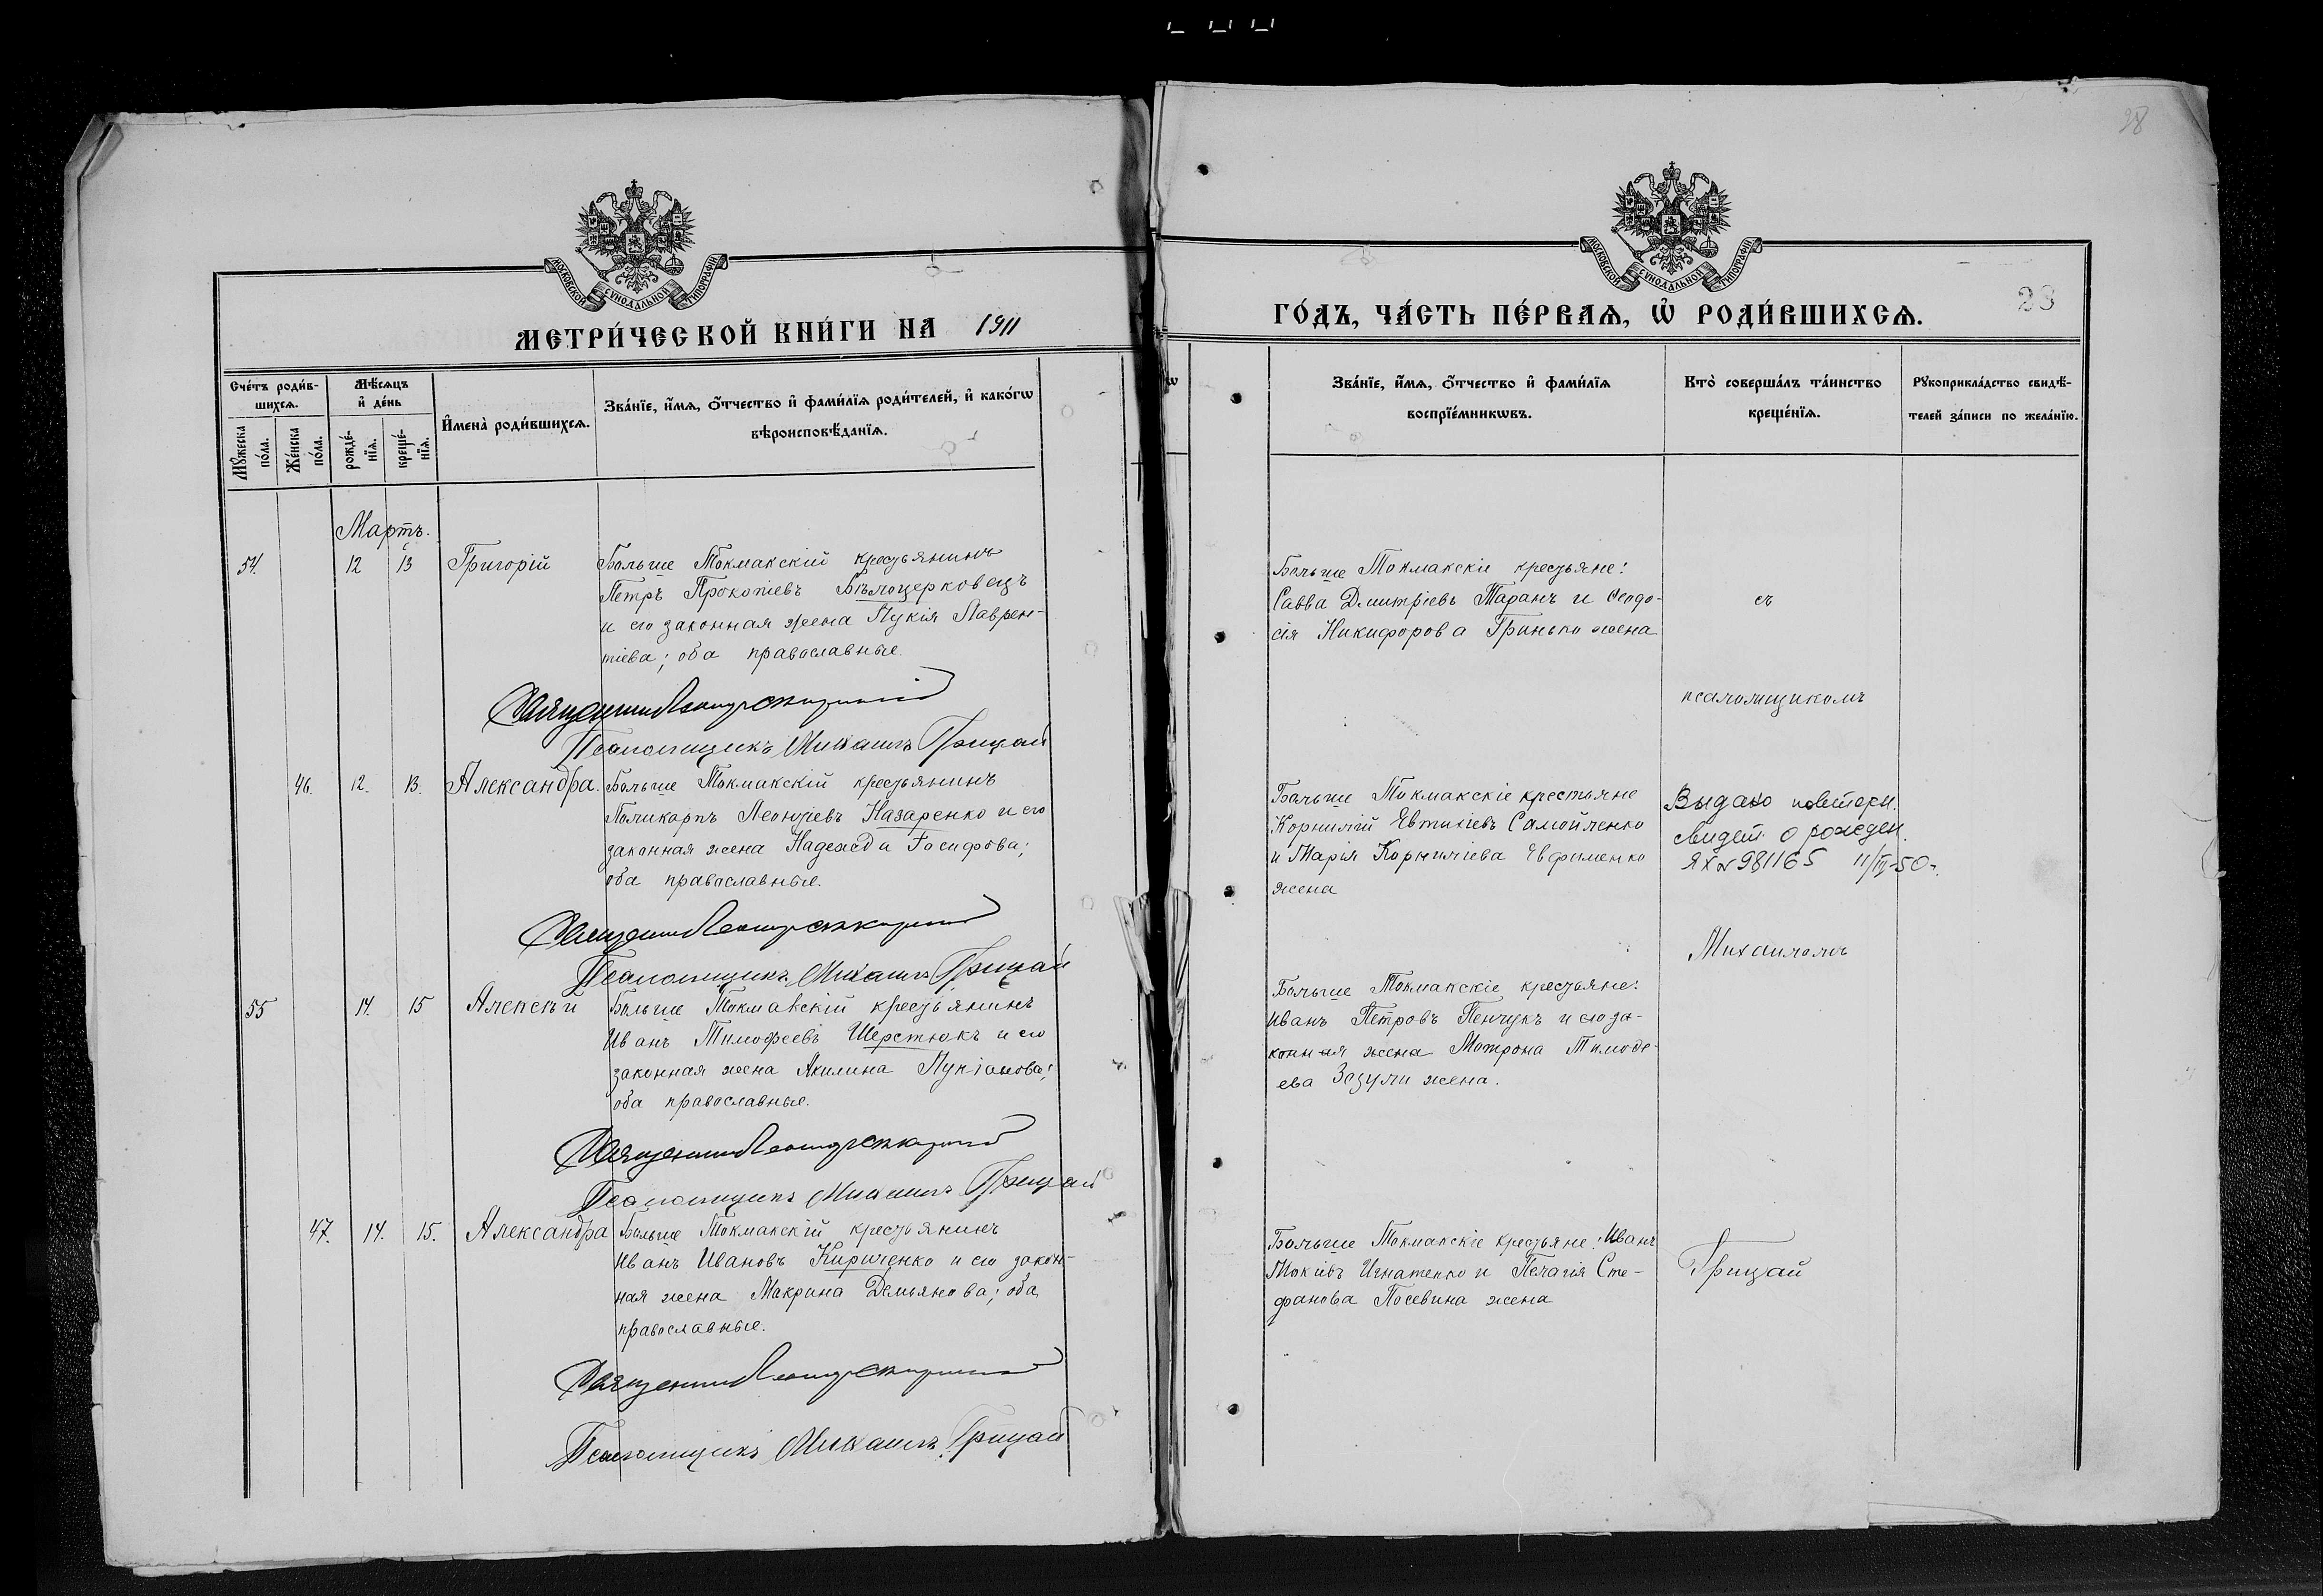 28
МОСКОВСКОЙ СѴНОДАЛЬНОЙ ТИПОГРАФІИ
МЕТРИ́ЧЕСКОЙ КНИ́ГИ НА 1911
Сче́тъ роди́в-
шихсѧ.
Мꙋ́жеска по́ла.
Же́нска по́ла.
Мѣ́сѧцъ
и҆ де́нь
рожде́-
нїѧ.
креще́-
нїѧ.
И҆мена̀ роди́вшихсѧ.
Зва́нїе, и҆́мѧ, ѻ҆́тчество и҆ фами́лїѧ роди́телей, и҆ како́гѡ
вѣроисповѣ́данїѧ.
Мартъ.
54.
12
13
Григорій
Больше Токмакскій крестьянинъ
Петръ Прокопіевъ Бѣлоцерковецъ
и его законная жена Лукія Лаврен-
тіева; оба православные.
Псаломщикъ Михаилъ Грицай
46.
12.
13.
Александра.
Больше Токмакскій крестьянинъ
Поликарпъ Леонтіевъ Назаренко и его
законная жена Надежда Іосифова;
оба православные.
Псаломщикъ Михаилъ Грицай
55
14.
15
Алексѣй
Больше Токмакскій крестьянинъ
Иванъ Тимофеевъ Шерстюкъ и его
законная жена Акилина Лукіанова;
оба православные.
Псаломщикъ Михаилъ Грицай
47.
14.
15.
Александра
Больше Токмакскій крестьянинъ
Иванъ Ивановъ Кириченко и его закон-
ная жена Макрина Демьянова; оба
православные.
Псаломщикъ Михаилъ Грицай
МОСКОВСКОЙ СѴНОДАЛЬНОЙ ТИПОГРАФІИ
ГО́ДЪ, ЧА́СТЬ ПЕ́РВАѦ, Ѡ҆ РОДИ́ВШИХСѦ.
Зва́нїе, и҆́мѧ, ѻ҆́тчество и҆ фами́лїѧ
воспрїе́мникѡвъ.
Кто̀ соверша́лъ та́инство
креще́нїѧ.
Рꙋкоприкла́дство свидѣ́-
телей за́писи по жела́нїю.
Больше Токмакскіе крестьяне:
Савва Дмитріевъ Таранъ и Ѳеодо-
сія Никифорова Гринько жена
съ
псаломщикомъ
Больше Токмакскіе крестьяне
Корнилій Евтихіевъ Самойленко
и Марія Корниліева Евфименко
жена
Выдано повторн.
свидет. о рожден.
ЯХ № 981165 11/III-50.
Михаиломъ
Больше Токмакскіе крестьяне:
Иванъ Петровъ Пенчукъ и его за-
конная жена Матрона Тимофе-
ева Зозули жена.
Больше Токмакскіе крестьяне: Иванъ
Игнатенко и Пелагія Сте-
фанова Посевина жена
Грицай